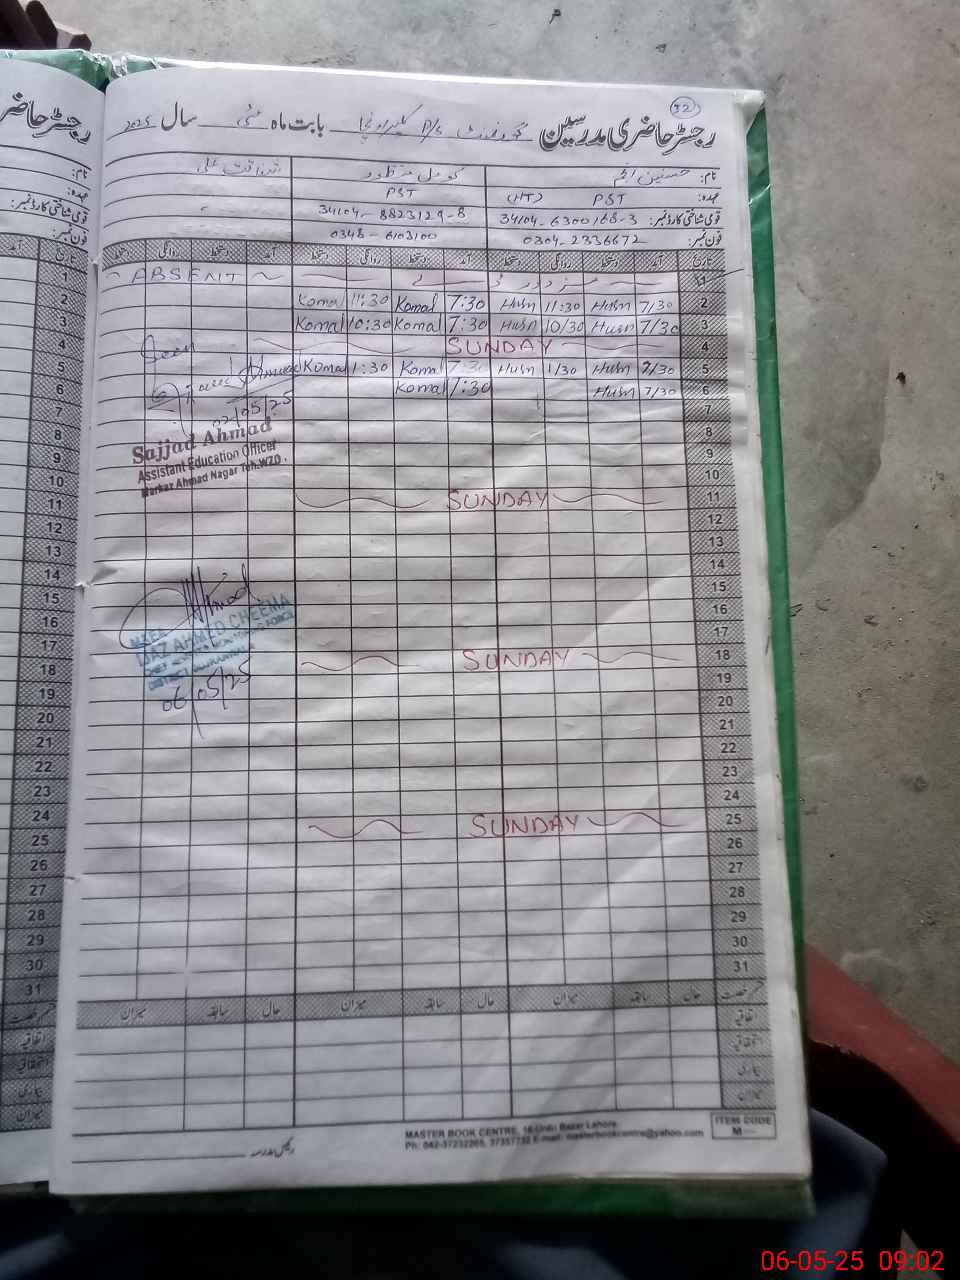 32
رجسٹر حاضری مدرسین گورنمنٹ P/S بابت ماہ مئی سال 2025
نام: حسنین انجم کومل منظور
عہدہ: PST (HT) PST
قومی شناختی کارڈ نمبر: 34104-6300168-3 34104-8823129-8
فون نمبر: 0304-2336672 0348-6103100
تاریخ آمد دستخط روانگی دستخط آمد دستخط روانگی دستخط آمد دستخط روانگی دستخط
1 ~ ABSENT ~
2 7/30 Husn 11:30 Husn 7:30 Komal 11:30 Komal
3 7/30 Husn 10/30 Husn 7:30 Komal 10:30 Komal
4 SUNDAY
5 7/30 Husn 1/30 Husn 7:30 Komal 1:30 Komal
6 7/30 Husn 7:30 Komal
7
02/05/25
8
Sajjad Ahmad
9
Assistant Education Officer
10
Markaz Ahmad Nagar Teh.WZD.
11 SUNDAY
12
13
14
15
16
17
MZEA
IJAZ AHMED CHEEMA
18 SUNDAY
06/05/25
19
20
21
22
23
24
25 SUNDAY
26
27
28
29
30
31
حال سابقہ میزان حال سابقہ میزان حال سابقہ میزان
اتفاقیہ
استحقاقیہ
بیماری
میزان
رئیس مدرسہ
MASTER BOOK CENTRE, 16-Urdu Bazar Lahore.
Ph: 042-37232265, 37357732 E-mail: masterbookcentre@yahoo.com
ITEM CODE
M—
رجسٹر حاضر
نام:
عہدہ:
قومی شناختی کارڈ نمبر:
فون نمبر:
تاریخ
1
2
3
4
5
6
7
8
9
10
11
12
13
14
15
16
17
18
19
20
21
22
23
24
25
26
27
28
29
30
31
اتفاقیہ
استحقاقیہ
بیماری
میزان
06-05-25 09:02